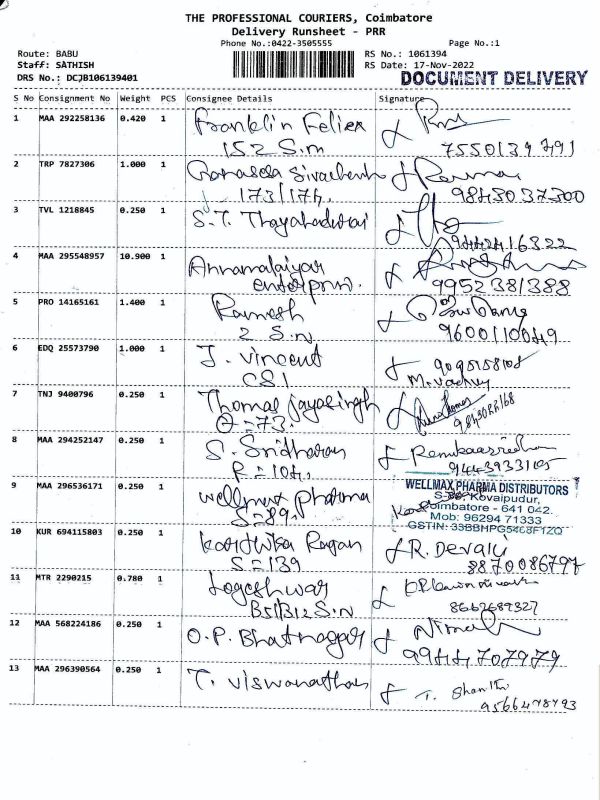 THE PROFESSIONAL COURIERS, Coimbatore
Delivery Runsheet - PRR
Phone No.:0422-3505555
Page No.:1
Route: BABU
RS No.: 1061394
Staff: SATHISH
RS Date: 17-Nov-2022
DRS No.: DCJB106139401
DOCUMENT DELIVERY
S No Consignment No Weight PCS Consignee Details Signature
1 MAA 292258136 0.420 1 Franklin Felix
152 S.m
2 TRP 7827306 1.000 1
173/174.
9843037300
3 TVL 1218845 0.250 1 S.T.
9442416322
4 MAA 295548957 10.900 1 Annamalaiyar
9952381388
5 PRO 14165161 1.400 1 Ramesh
2 S.N
9600110049
6 EDQ 25573790 1.000 1 J. Vincent
CSI
7 TNJ 9400796 0.250 1 Thomas Jayasingh
8 MAA 294252147 0.250 1 S. Sridharan
9 MAA 296536171 0.250 1 wellmax pharma
S=89.
WELLMAX PHARMA DISTRIBUTORS
Kovaipudur,
Coimbatore - 641 042.
Mob: 96294 71333
10 KUR 694115803 0.250 1 Karthika Ragan
S=139
R. Devaly
8870086797
11 MTR 2290215 0.780 1 Logeshwar
B5/B12 S.N
12 MAA 568224186 0.250 1 O.P. Bhatnagar
9944707979
13 MAA 296390564 0.250 1 T. Viswanathan
T.